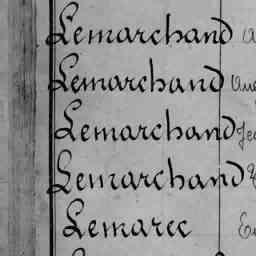 Lemarchand
Lemarchand
Lemarchand
Lemarchand
Lemarec